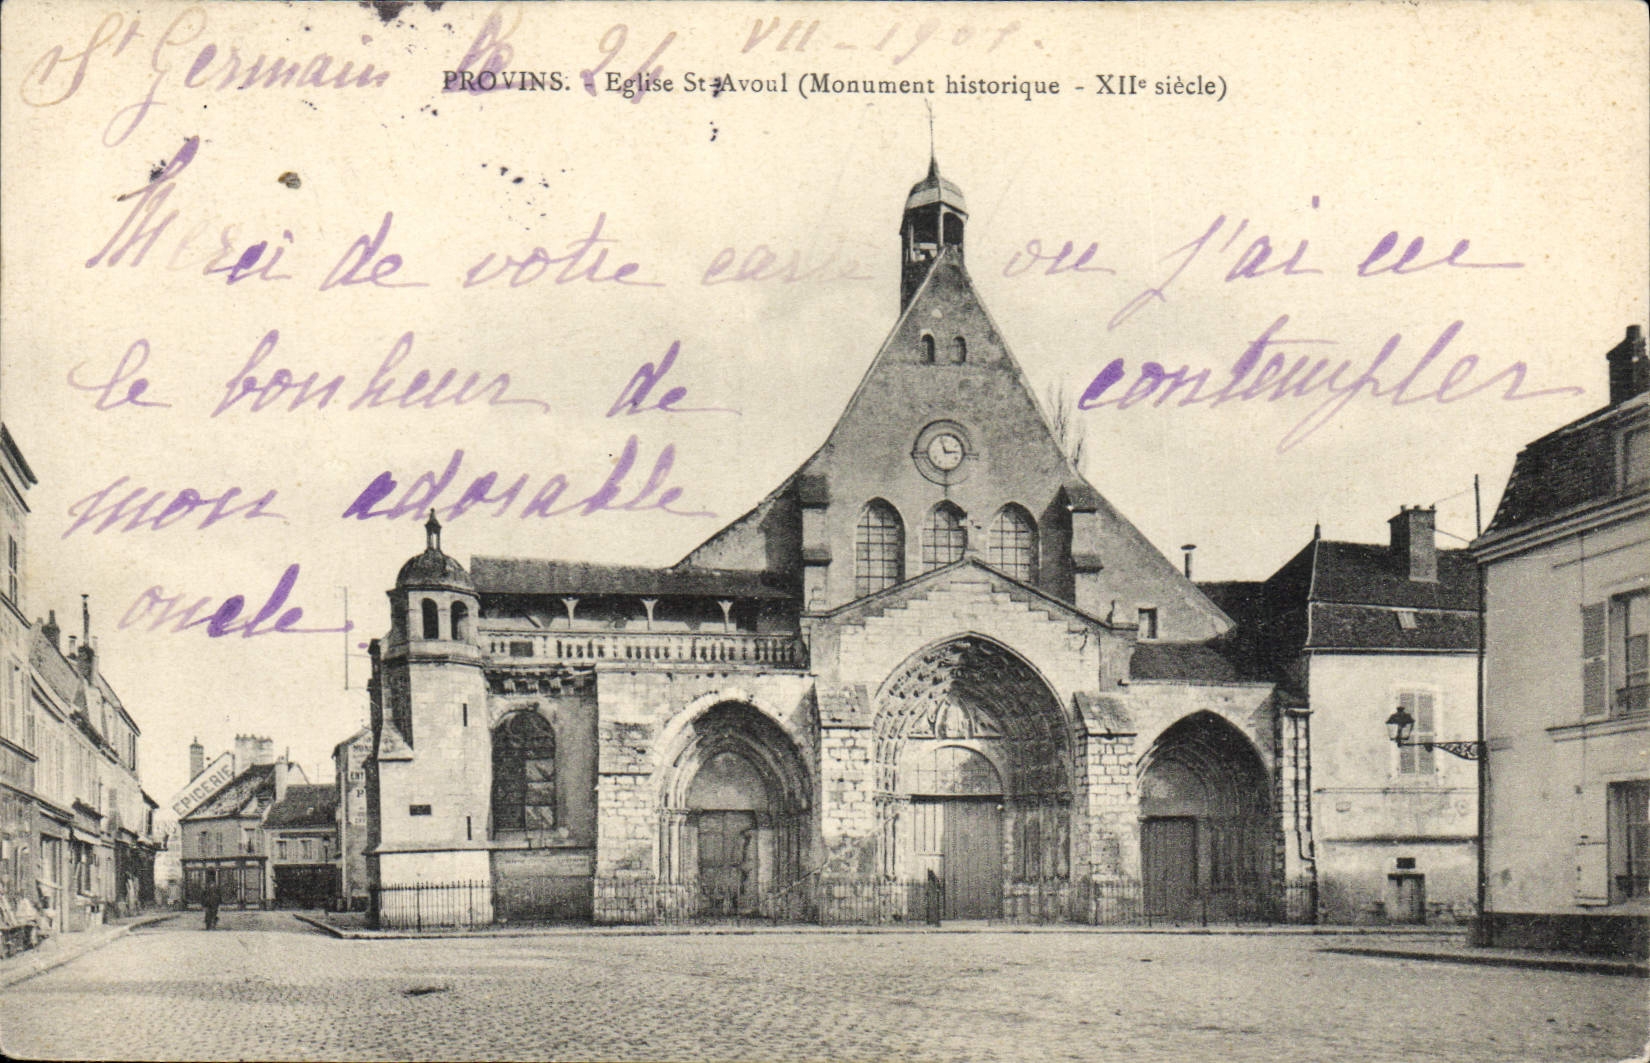 St Germain le 24 VII - 1901.
PROVINS. - Eglise St-Avoul (Monument historique - XIIe siècle)
Merci de votre carte ou j'ai eu
le bonheur de contempler
mon adorable
oncle.
EPICERIE